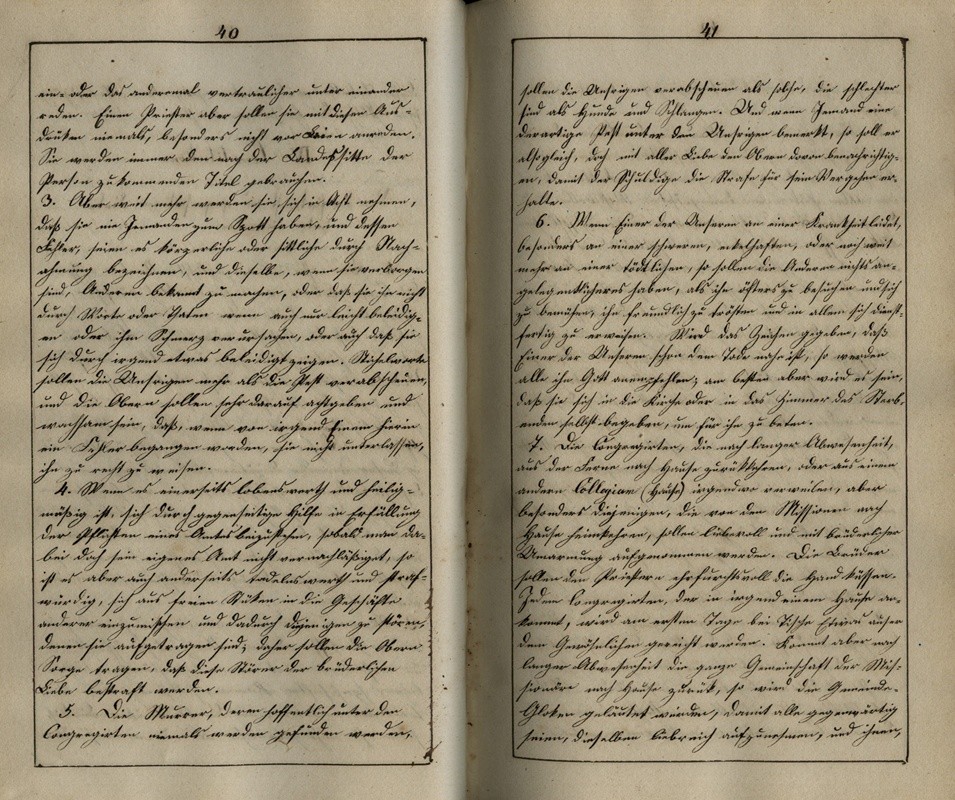 40
ein- oder das anderemal vertraulicher unter einander
reden. Einen Priester aber sollen sie mit diesen Aus-
drüken niemals, besonders nicht vor Laien anreden.
Sie werden immer den nach der Landessitte der
Person zukommenden Titel gebrauchen.
3. Aber weit mehr werden sie sich in Acht nehmen,
daß sie nie Jemanden zum Spott haben, und dessen
Fehler, seien es körperliche oder sittliche durch Nach-
ahmung bezeichnen, und dieselbe, wenn sie verborgen
sind, Anderen bekannt zu machen, oder daß sie ihn nicht
durch Worte oder Thaten wenn auch nur leicht beleidig-
en oder ihm Schmerz verursachen, oder auch daß sie
sich durch irgend etwas beleidigt zeigen. Stichelworte
sollen die Unsrigen mehr als die Pest verabscheuen,
und die Obern sollen sehr darauf achtgeben und
wachsam sein, daß, wenn von irgend Einem hierin
ein Fehler begangen worden, sie nicht unterlassen,
ihn zu recht zu weisen.
4. Wenn es einerseits lobenswerth und heilig-
mäßig ist, sich durch gegenseitige Hilfe in Erfüllung
der Pflichten eines Amtes beizustehen, sobald man da-
bei doch sein eigenes Amt nicht vernachläßiget, so
ist es aber auch anderseits tadelnswerth und straf-
würdig, sich aus freien Stüken in die Geschäfte
anderer einzumischen und dadurch diejenigen zu stören,
denen sie aufgetragen sind; daher sollen die Obern
Sorge tragen, daß diese Störer der brüderlichen
Liebe bestraft werden.
5. Die Murrer, deren hoffentlich unter den
Congregirten niemals werden gefunden werden,
41
sollen die Unsrigen verabscheuen als solche, die schlechter
sind als Hunde und Schlangen. Und wenn Jemand eine
derartige Pest unter den Unsrigen bemerkt, so soll er
alsogleich, doch mit aller Liebe den Obern davon benachrichtig-
en, damit der Schuldige die Strafe für sein Vergehen er-
halte.
6. Wenn Einer der Unseren an einer Krankheit leidet,
besonders an einer schweren, ekelhaften, oder noch weit
mehr an einer tödtlichen, so sollen die Anderen nichts an-
gelegentlicheres haben, als ihn öfters zu besuchen und sich
zu bemühen, ihn freundlich zu trösten und in allem sich dienst-
fertig zu erweisen. Wird das Zeichen gegeben, daß
Einer der Unseren schon dem Tode nahe ist, so werden
alle ihn Gott anempfehlen; am besten aber wird es sein,
daß sie sich in die Kirche oder in das Zimmer des Sterb-
enden selbst begeben, um für ihn zu beten.
7. Die Congregirten, die nach langer Abwesenheit,
aus der Ferne nach Hause zurükkehren, oder aus einem
andern Collegium (Hause) irgendwo verweilen, aber
besonders diejenigen, die von den Missionen nach
Hause heimkehren, sollen liebevoll und mit brüderlicher
Umarmung aufgenommen werden. Die Brüder
sollen den Priestern ehrfurchtsvoll die Hand küssen.
Jedem Congregirten, der in irgend einem Hause an-
kommt, wird am ersten Tage bei Tische Etwas außer
dem Gewöhnlichen gereicht werden. Kommt aber nach
langer Abwesenheit die ganze Gemeinschaft der Mis-
sionäre nach Hause zurük, so wird die Gemeinde-
Gloken geläutet werden, damit alle gegenwärtig
seien, dieselben liebreich aufzunehmen, und ihnen,